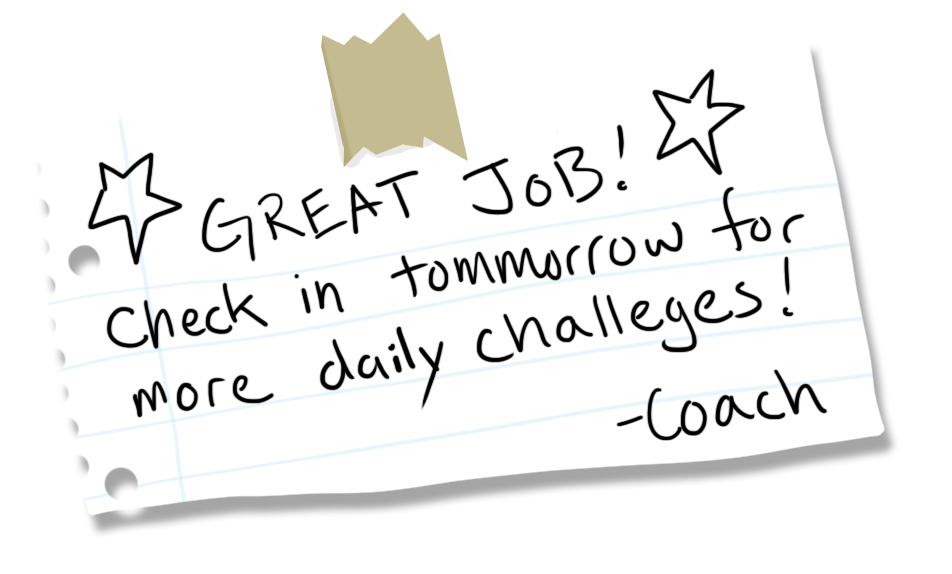 GREAT JOB!
Check in tommorrow for
more daily challeges!
-Coach